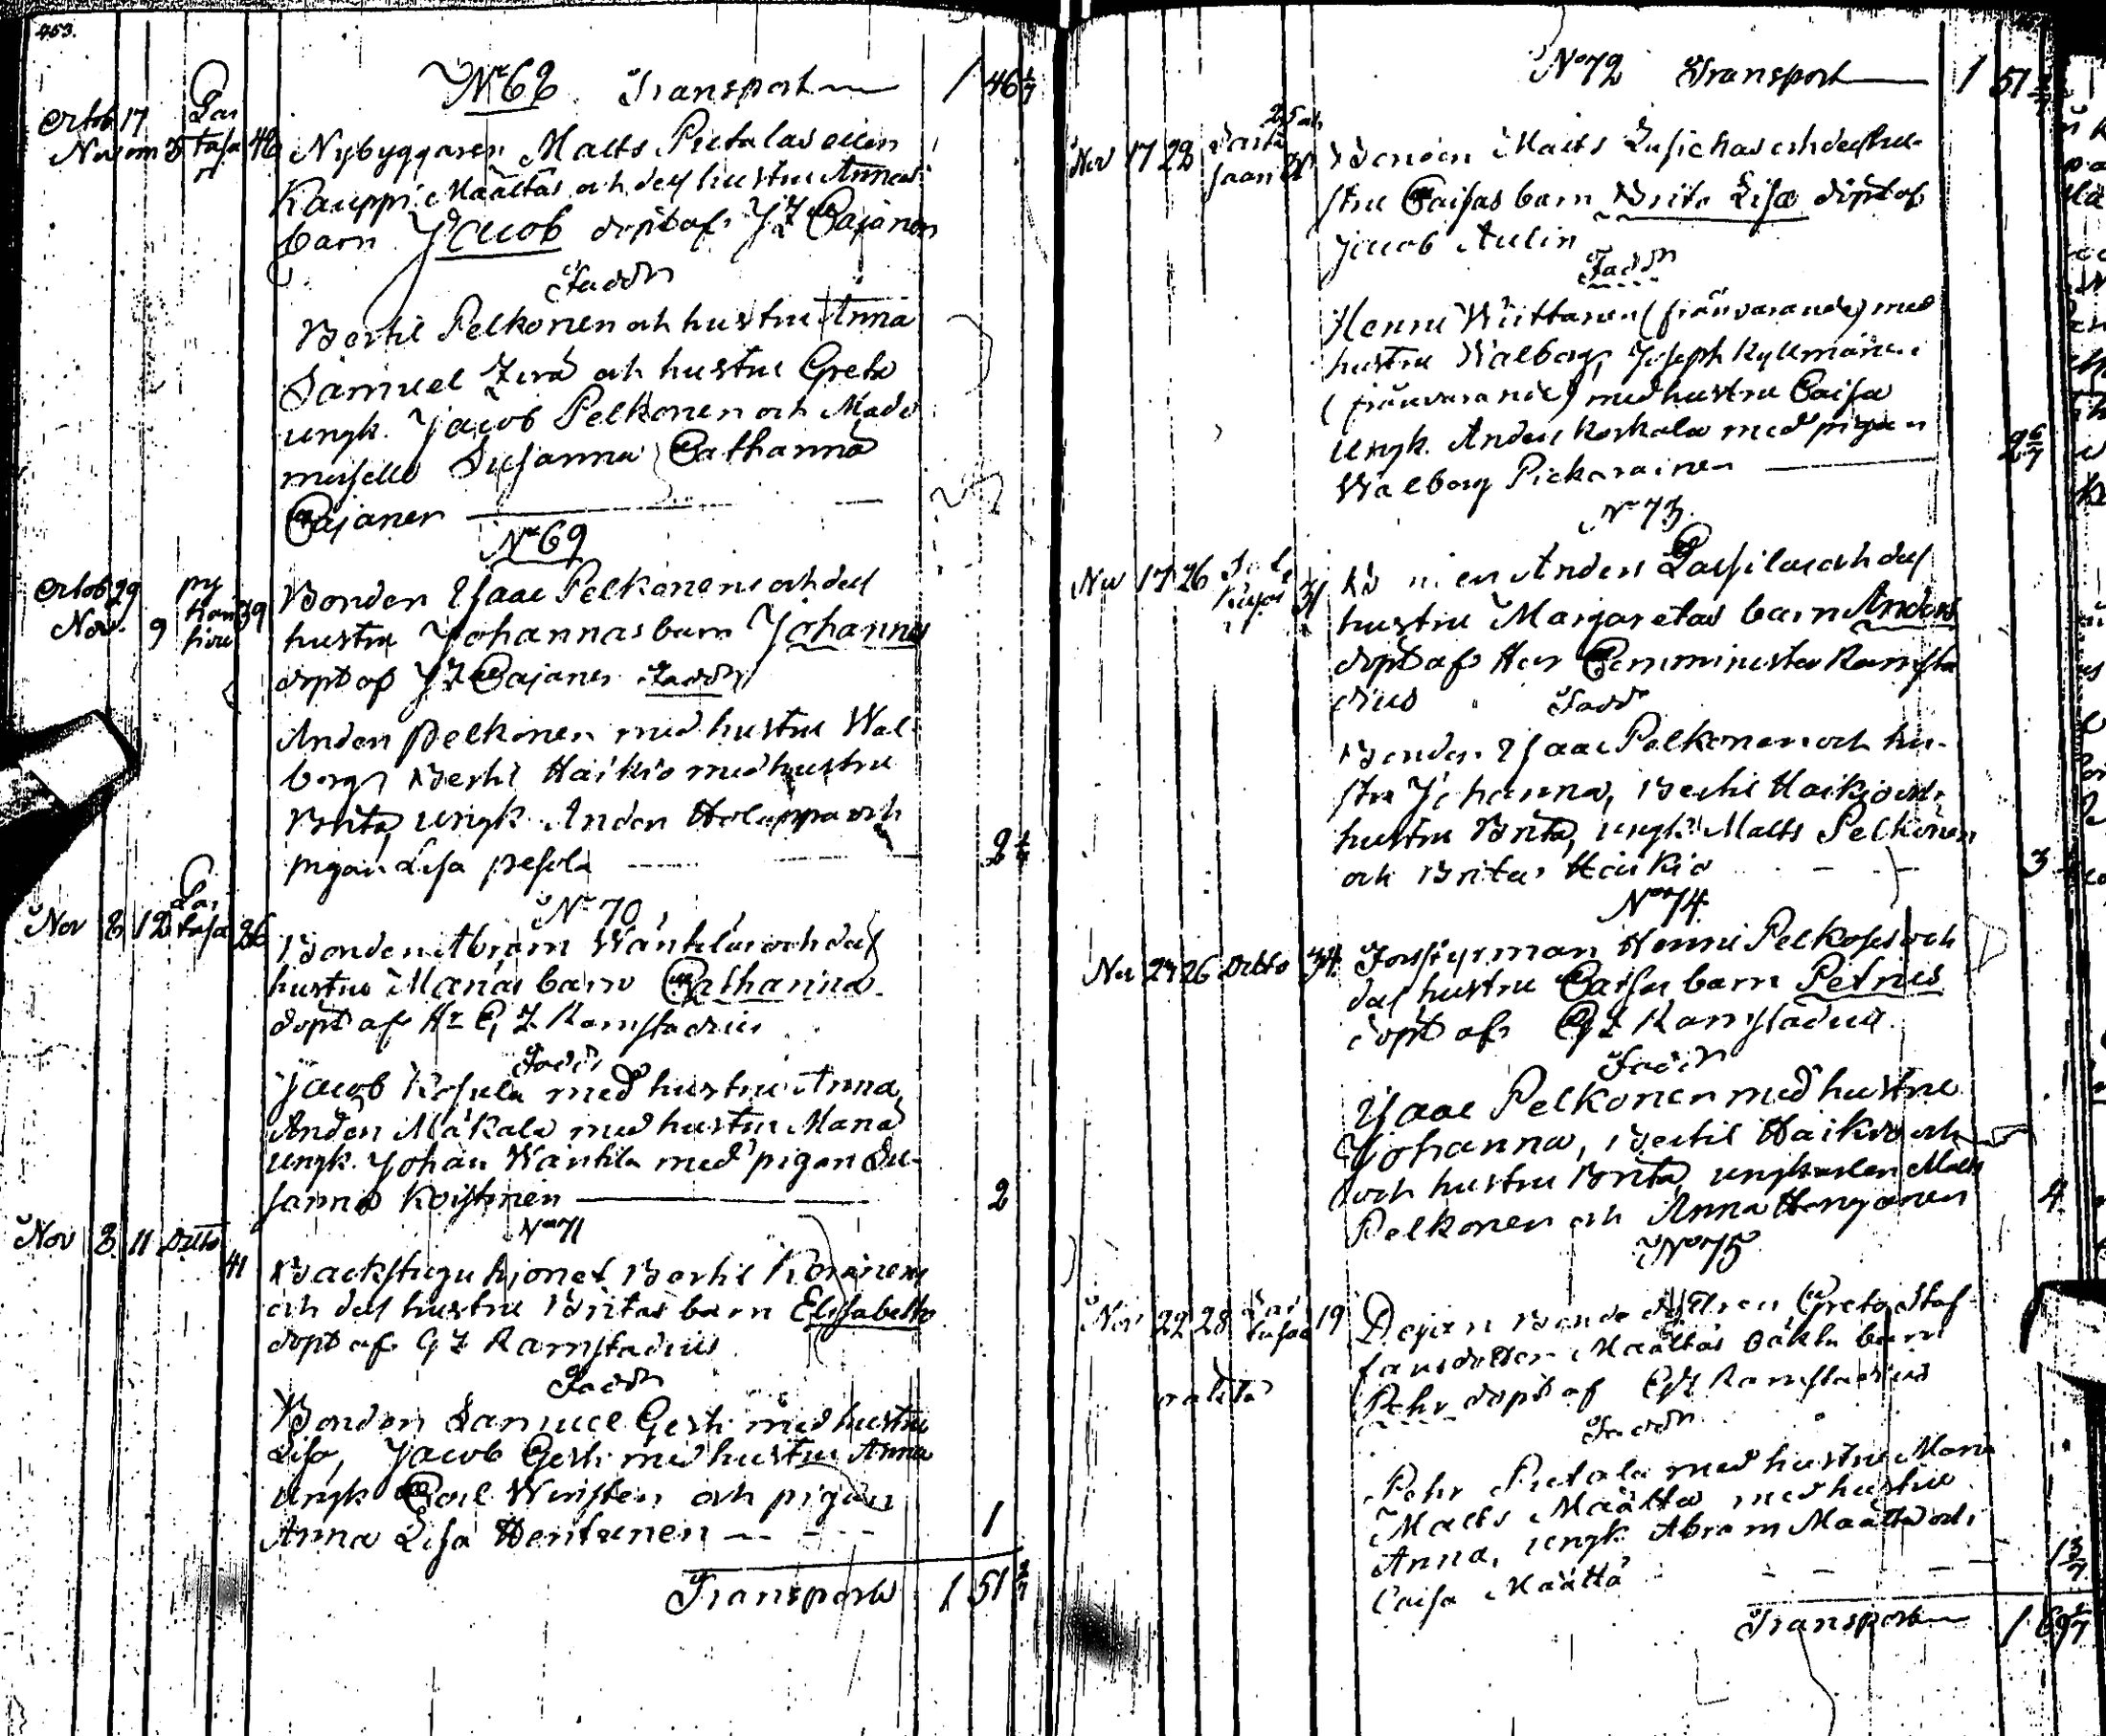 453.
No 68 Transport 1 46
Octob 17 Nybyggaren Matts Pietalas eller
Kauppi Määttäs och dess hustru Annas
barn Jacob döpt af JZ Cajanen
Faddr
Bertil Pelkonen och hustru Anna
Samuel och hustru Greta
ungk. Jacob Pelkonen och Made
moiselle Susanna Catharina
Cajaner
No 69
Octob 29 Bonden Isaac Pelkonens och dess
Nov. 9 39 hustru Johannas barn Johannes
döpt af JZ Cajaner Faddr
Anders Pelkonen med hustru Wal-
borg, Bertil Haikio med hustru
Brita, ungk. Anders Holappa och
pigan Lisa Pesola
No 70
Nov 8 12 26 Bonden Abram Wäntiläs och dess
hustru Marias barn Catharina
döpt af Hr C Z Ramstadius
Faddr
Jacob Kosula med hustru Anna
Anders Mäkälä med hustru Maria
ungk. Johan Wäntilä med pigan Su-
sanna Koistinen 2
No 71
Nov 8 11 Ditto 41 Backstuguhjonet Bertil Korainens
och dess hustru Britas barn Elisabetha
döpt af CZ Ramstadius
Faddr
Bonden Samuel Gesti med hustru
Lisa, Jacob Gesti med hustru Anna
ungk Carl Winsten och pigan
Anna Lisa Hentunen 1
Transport 1 51
No 72 Transport 1 51
Nov 17 22 Bonden Matts och dess hu-
stru Caisas barn Brita Lisa döpt af
Jacob Aulin
Faddr
Henric Wiittanen (frånvarande) med
hustru Walborg, Joseph Kyllmänen
(frånvarande) med hustru Caisa
ungk. Anders Koskala med pigan
Walborg Pickarainen
No 73.
Nov 17 26 31 Anders Lassilas och dess
hustru Margaretas barn Anders
döpt af Herr Comminister Ramsta
dius Faddr
Bonden Isaac Pelkonen och hu-
stru Johanna, Bertil Haikio och
hustru Brita, ungk. Matts Pelkonen
och Brita Haikio 3
No 74.
Nov 24 26 Ditto 34 Torpparen Henric Pelkoses och
dess hustru Caisas barn Petrus
döpt af CZ Ramstadius
Faddr
Isaac Pelkonen med hustru
Johanna, Bertil Haikio och
och hustru Brita, ungkarlen Matts
Pelkonen och Anna Hengonen 4.
No 75
Nov 22 28 19 Pejan Bondedottren Greta Staf-
fansdotter Määttäs oäkta barn
Pehr döpt af CZ Ramstadius
Faddr
Pehr Pietala med hustru Maria
Matts Määttä med hustru
Anna, ungk. Abram Määttä och
Caisa Määttä
Transport 1